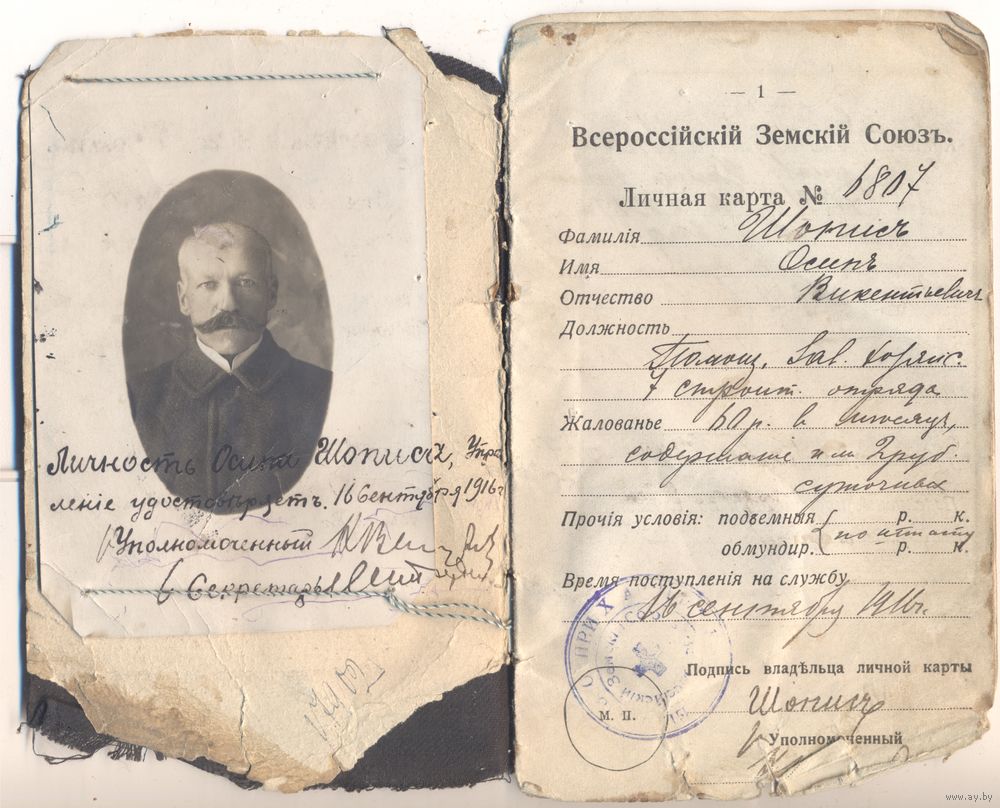 Личность Осипа Шопись, Управ
леніе удостовѣряетъ. 16 Сентября 1916 г
Уполномоченный
Секретарь
— 1 —
Всероссійскій Земскій Союзъ.
Личная карта № 6807
Фамилія Шопись
Имя Осипъ
Отчество Викентьевичъ
Должность
Помощ. Зав. Хозяйс.
7 строит. отряда
Жалованье 60 р. в мѣсяцъ,
содержаніе или 2 руб.
суточных
Прочія условія: подъемныя р. к.
обмундир. р. к.
по штату
Время поступленія на службу
16 сентября 1916 г.
Подпись владѣльца личной карты
Шопись
М. П.
Уполномоченный
www.ay.by